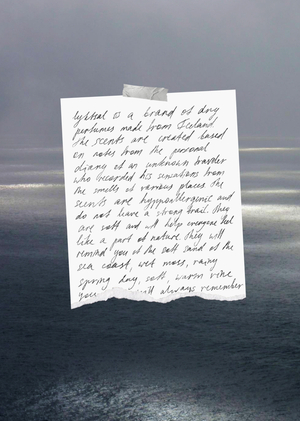 is a brand of dry
perfumes made from Iceland
The scents are created based
on notes from the personal
diary of an unknown traveler
who recorded his sensations from
the smells of various places. The
scents are hypoallergenic and
do not leave a strong trail. They
are soft and will help everyone feel
like a part of nature they will
remind you of the soft sand of the
sea coast, wet moss, rainy
spring day, soft, warm
will always remember